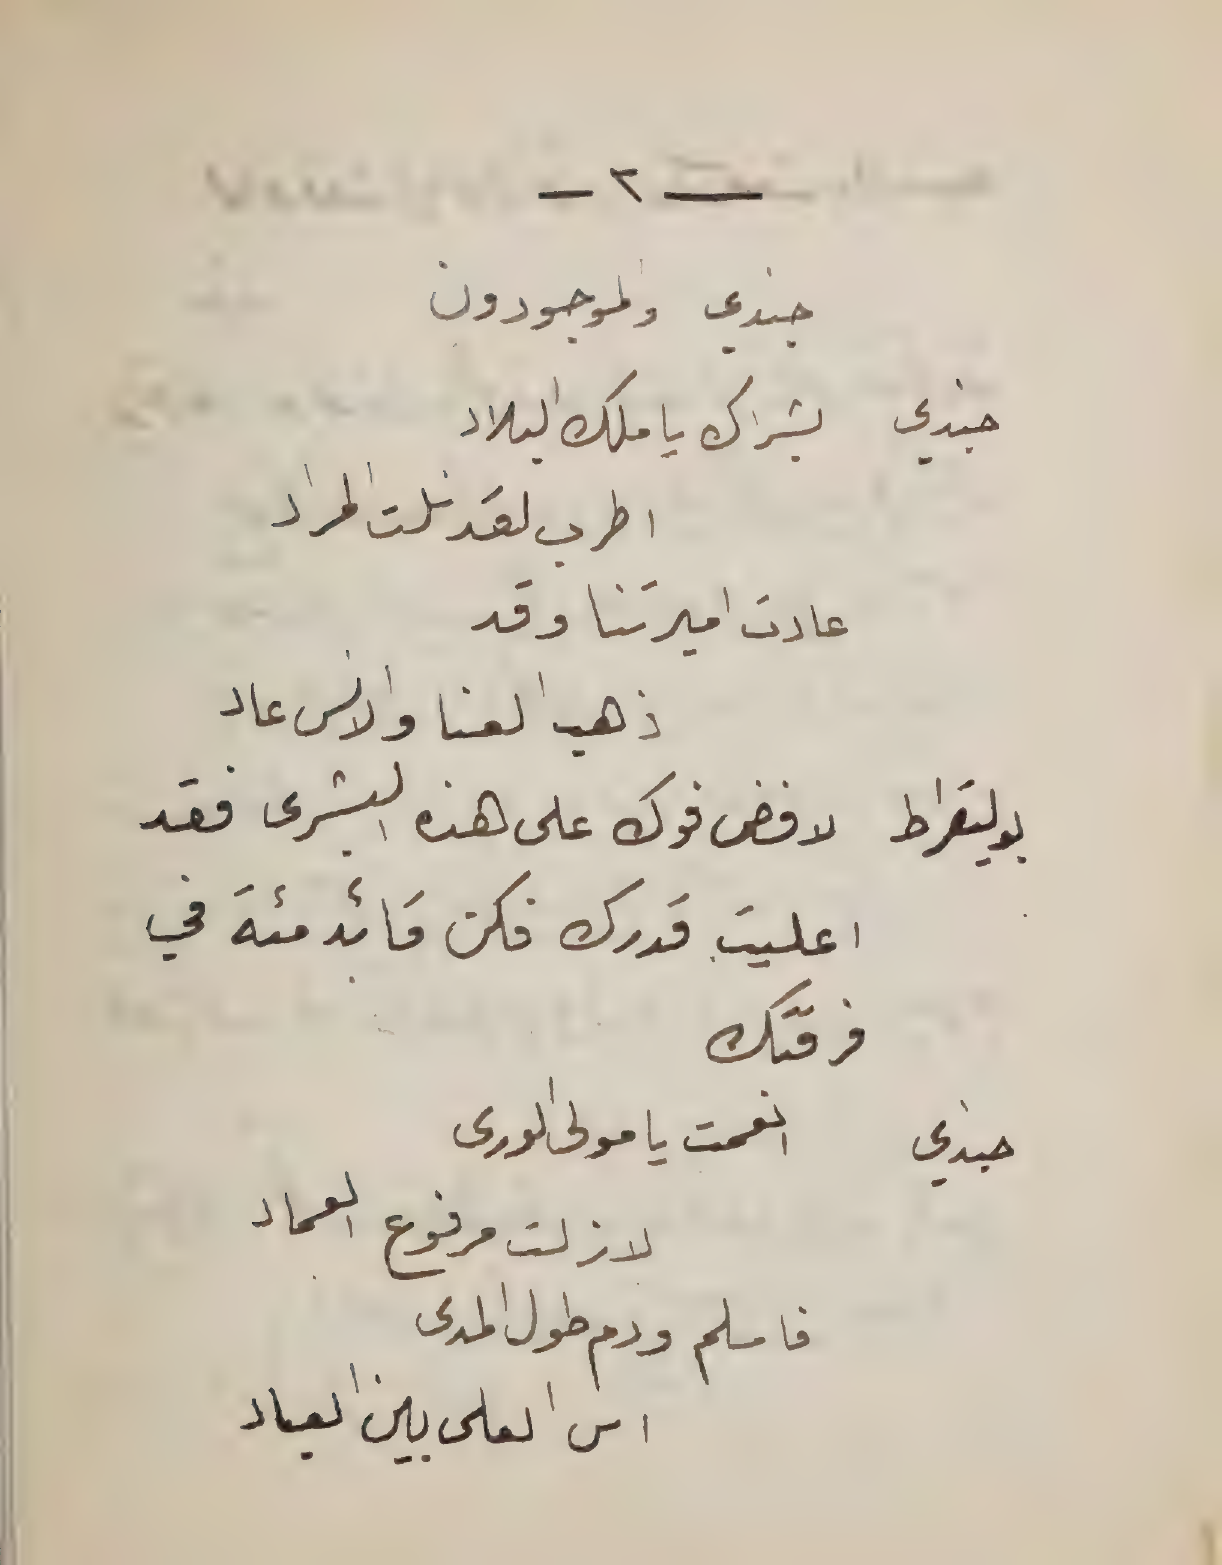 — ٢ —
جندي والموجودون
جندي بشراك يا ملك البلاد
اطرب لقد نلت المراد
عادت اميرتنا وقد
ذهب العنا والانس عاد
بوليقراط لا فض فوك على هذه البشرى فقد
اعليت قدرك فكن قائد مئة في
فرقتك
جندي انعمت يا مولى الورى
لا زلت مرفوع العماد
فاسلم ودم طول المدى
اس العلى بين العباد